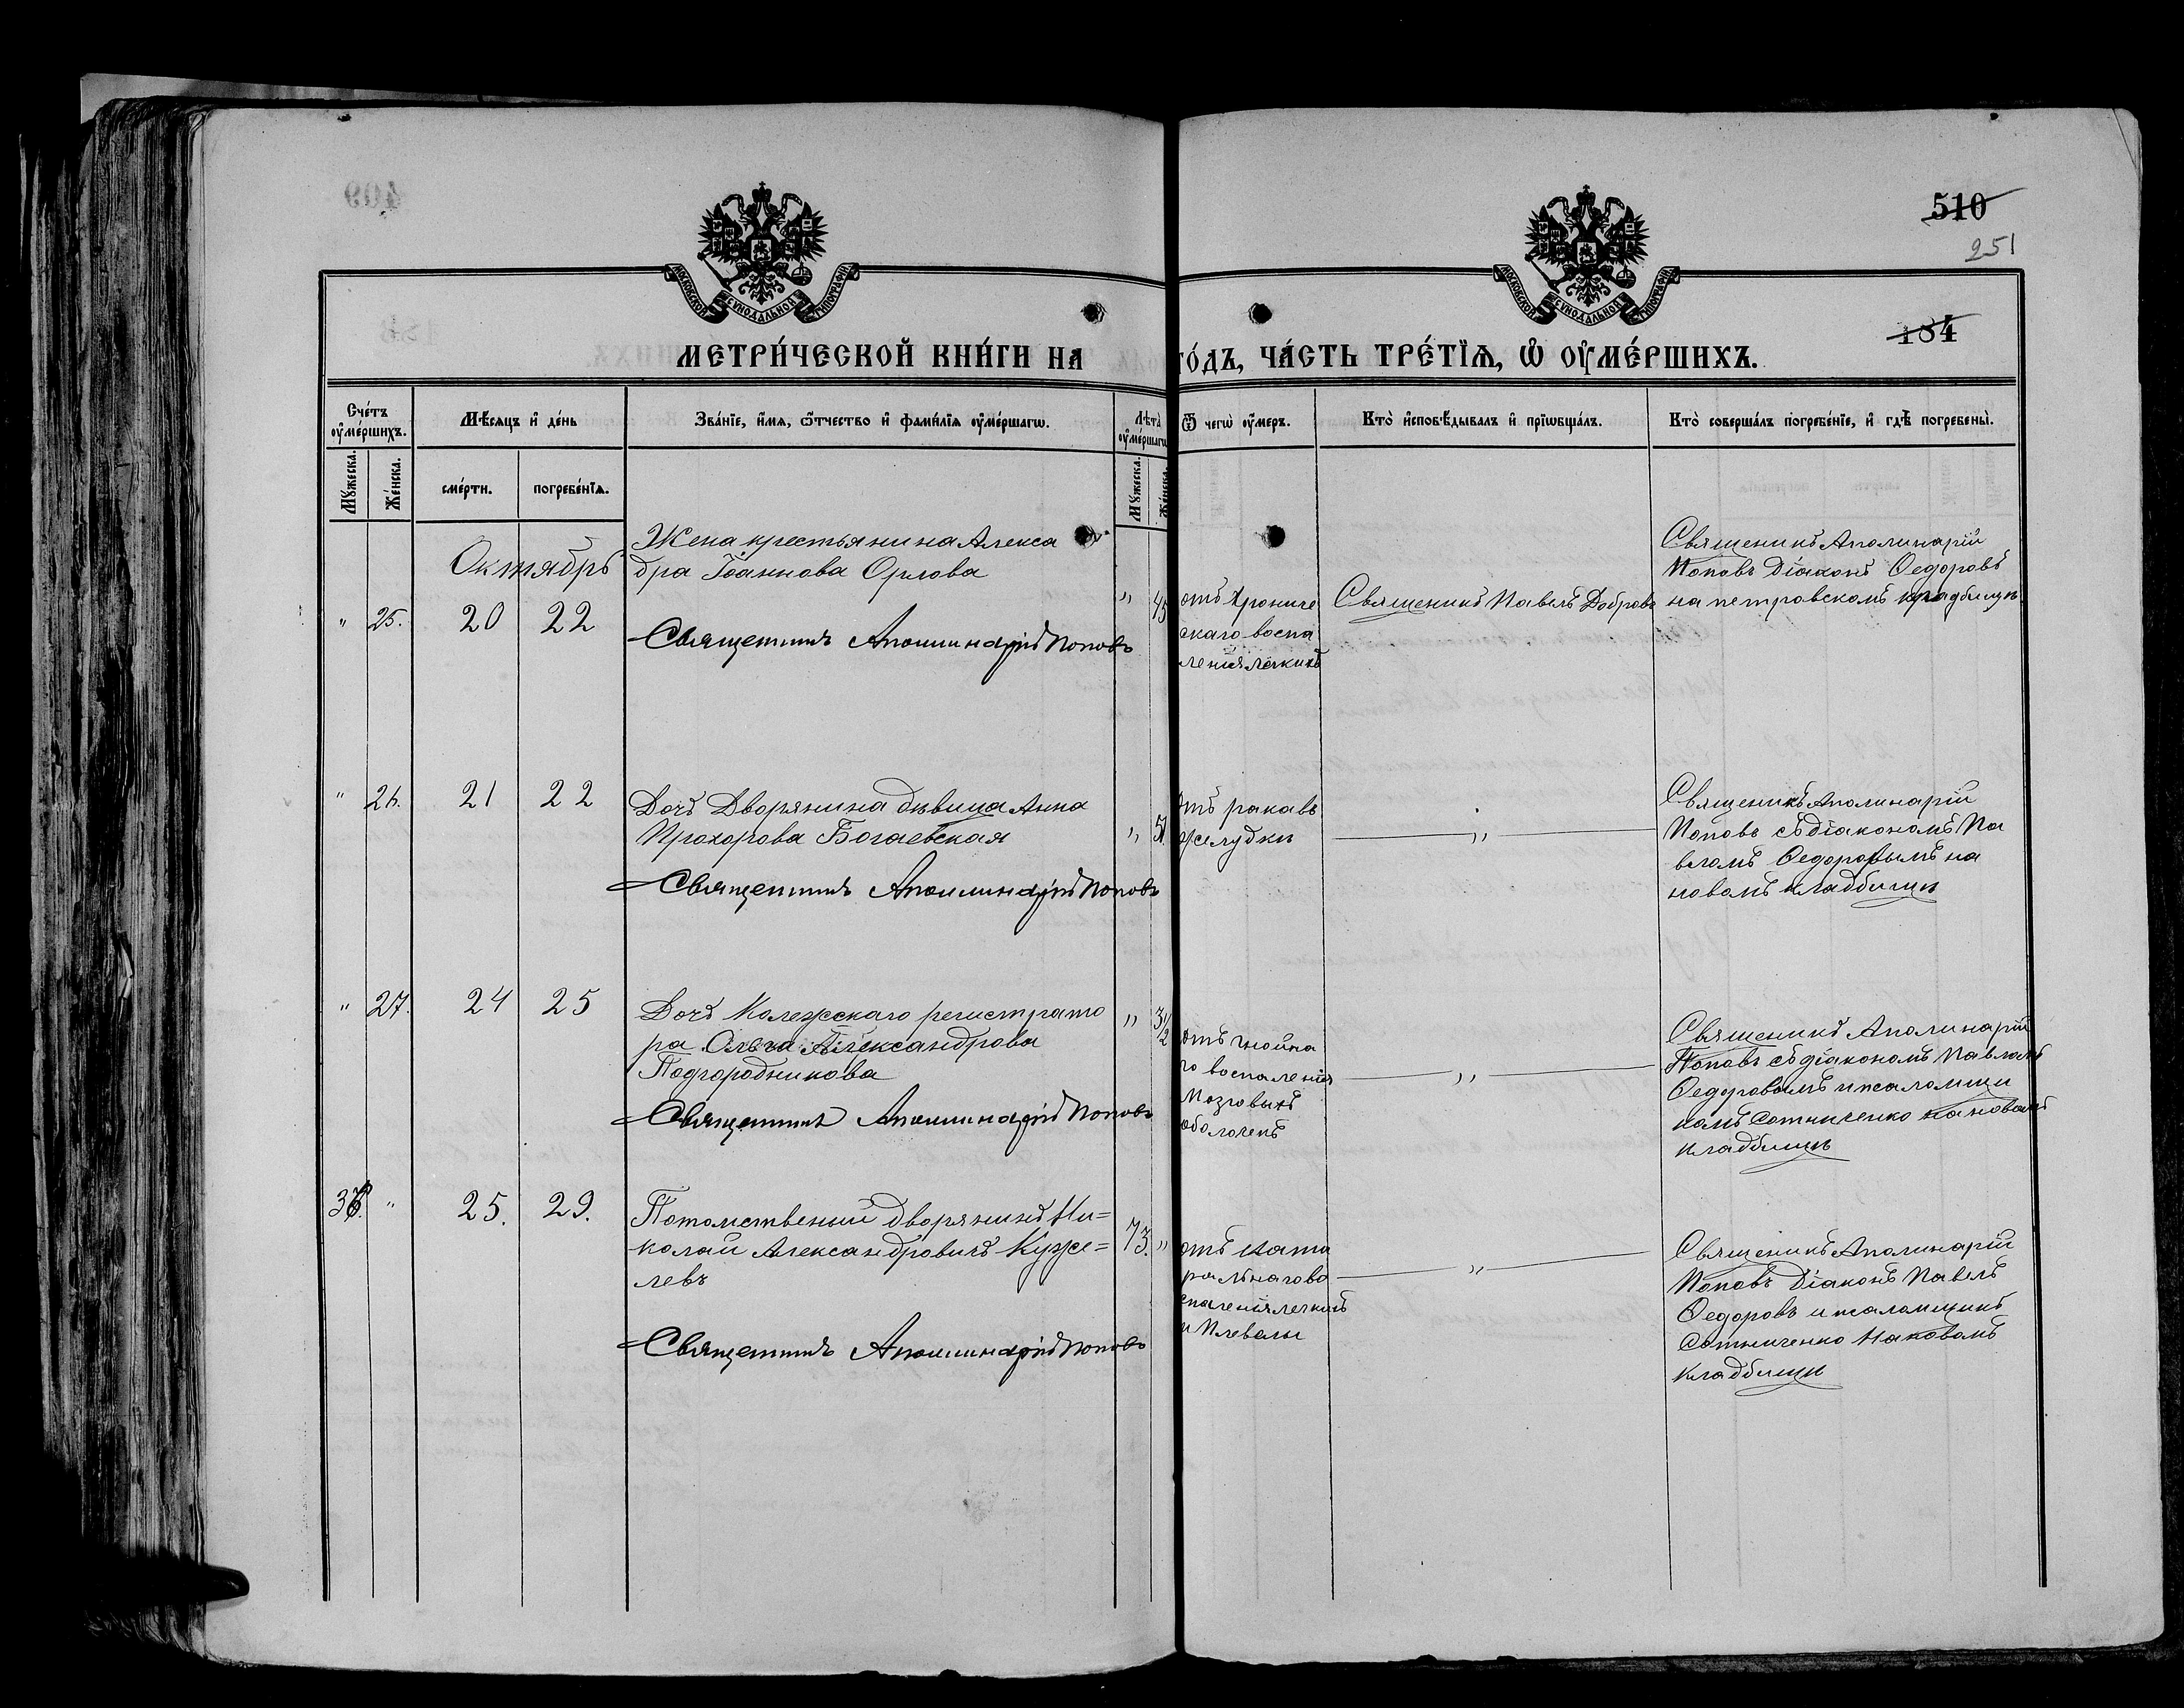 510
251
184
МОСКОВСКОЙ СУНОДАЛЬНОЙ ТИПОГРАФІИ
МОСКОВСКОЙ СУНОДАЛЬНОЙ ТИПОГРАФІИ
МЕТРИ́ЧЕСКОЙ КНИ́ГИ НА
ГО́ДЪ, ЧА́СТЬ ТРЕ́ТЇѦ, Ѡ҆ ОУ҆МЕ́РШИХЪ.
Сче́тъ оу҆ме́ршихъ.
Мѣ́сяцъ и҆ де́нь
Зва́нїе, и҆́мя, ѻ҆́тчество и҆ фами́лїя оу҆ме́ршагѡ.
Лѣ́та оу҆ме́ршагѡ
Ѿ чегѡ̀ оу҆́меръ.
Кто̀ и҆сповѣ́дывалъ и҆ прїѡбща́лъ.
Кто̀ соверша́лъ погребе́нїе, и҆ гдѣ̀ погребены̀.
Мꙋ́жеска.
Же́нска.
сме́рти.
погребе́нїя.
Мꙋ́жеска.
Же́нска.
Октябрь
" 25. 20 22
Жена крестьянина Алекса
дра Іоаннова Орлова
Священникъ Аполлинарій Поповъ
" 45
отъ Хрониче
скаго воспа
ленія легкихъ
Священикъ Павелъ Добров
Священикъ Аполинарій
Поповъ Діаконъ Ѳедоровъ
на петровскомъ кладбищѣ
" 26. 21 22
Дочь Дворянина дѣвица Анна
Прохорова Богаевская
Священникъ Аполлинарій Поповъ
" 51.
Отъ рака въ
желудкѣ
"
Священикъ Аполинарій
Поповъ съ діакономъ Па
вломъ Ѳедоровымъ на
новомъ кладбищѣ
" 27. 24 25
Дочь Колежскаго регистрато
ра Ольга Александрова
Подгородникова
Священникъ Аполлинарій Поповъ
" 3 1/2
Отъ гнойна
го воспаленія
Мозговыхъ
оболочекъ
"
Священикъ Аполинарій
Поповъ съ діакономъ Павломъ
Ѳедоровымъ и псаломщи
комъ Сотниченко на новомъ
кладбищѣ
" 25. 29.
Потомственый дворянинъ Ни=
колай Александровичъ Куже=
левъ
Священникъ Аполлинарій Поповъ
73. "
отъ ката
ральнаго во
спаленія легкихъ
и Плевры
"
Священикъ Аполинарій
Поповъ Діаконъ Павелъ
Ѳедоровъ и псаломщикъ
Сотниченко На новомъ
кладбищѣ